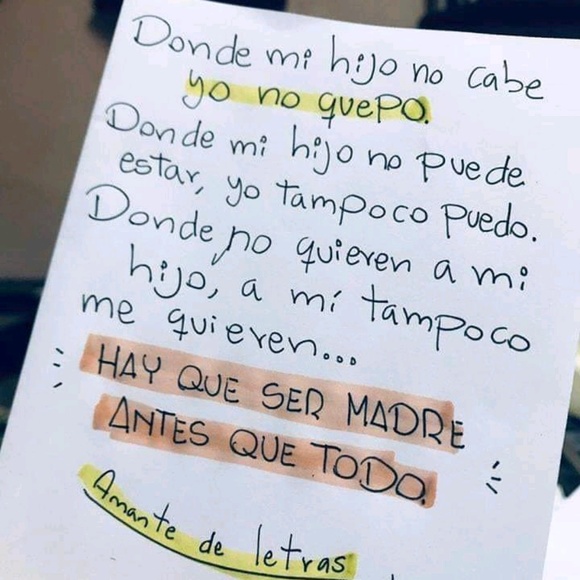 Donde mi hijo no cabe
yo no quepo.
Donde mi hijo no puede
estar, yo tampoco puedo.
Donde no quieren a mi
hijo, a mí tampoco
me quieren...
HAY QUE SER MADRE
ANTES QUE TODO.
Amante de letras